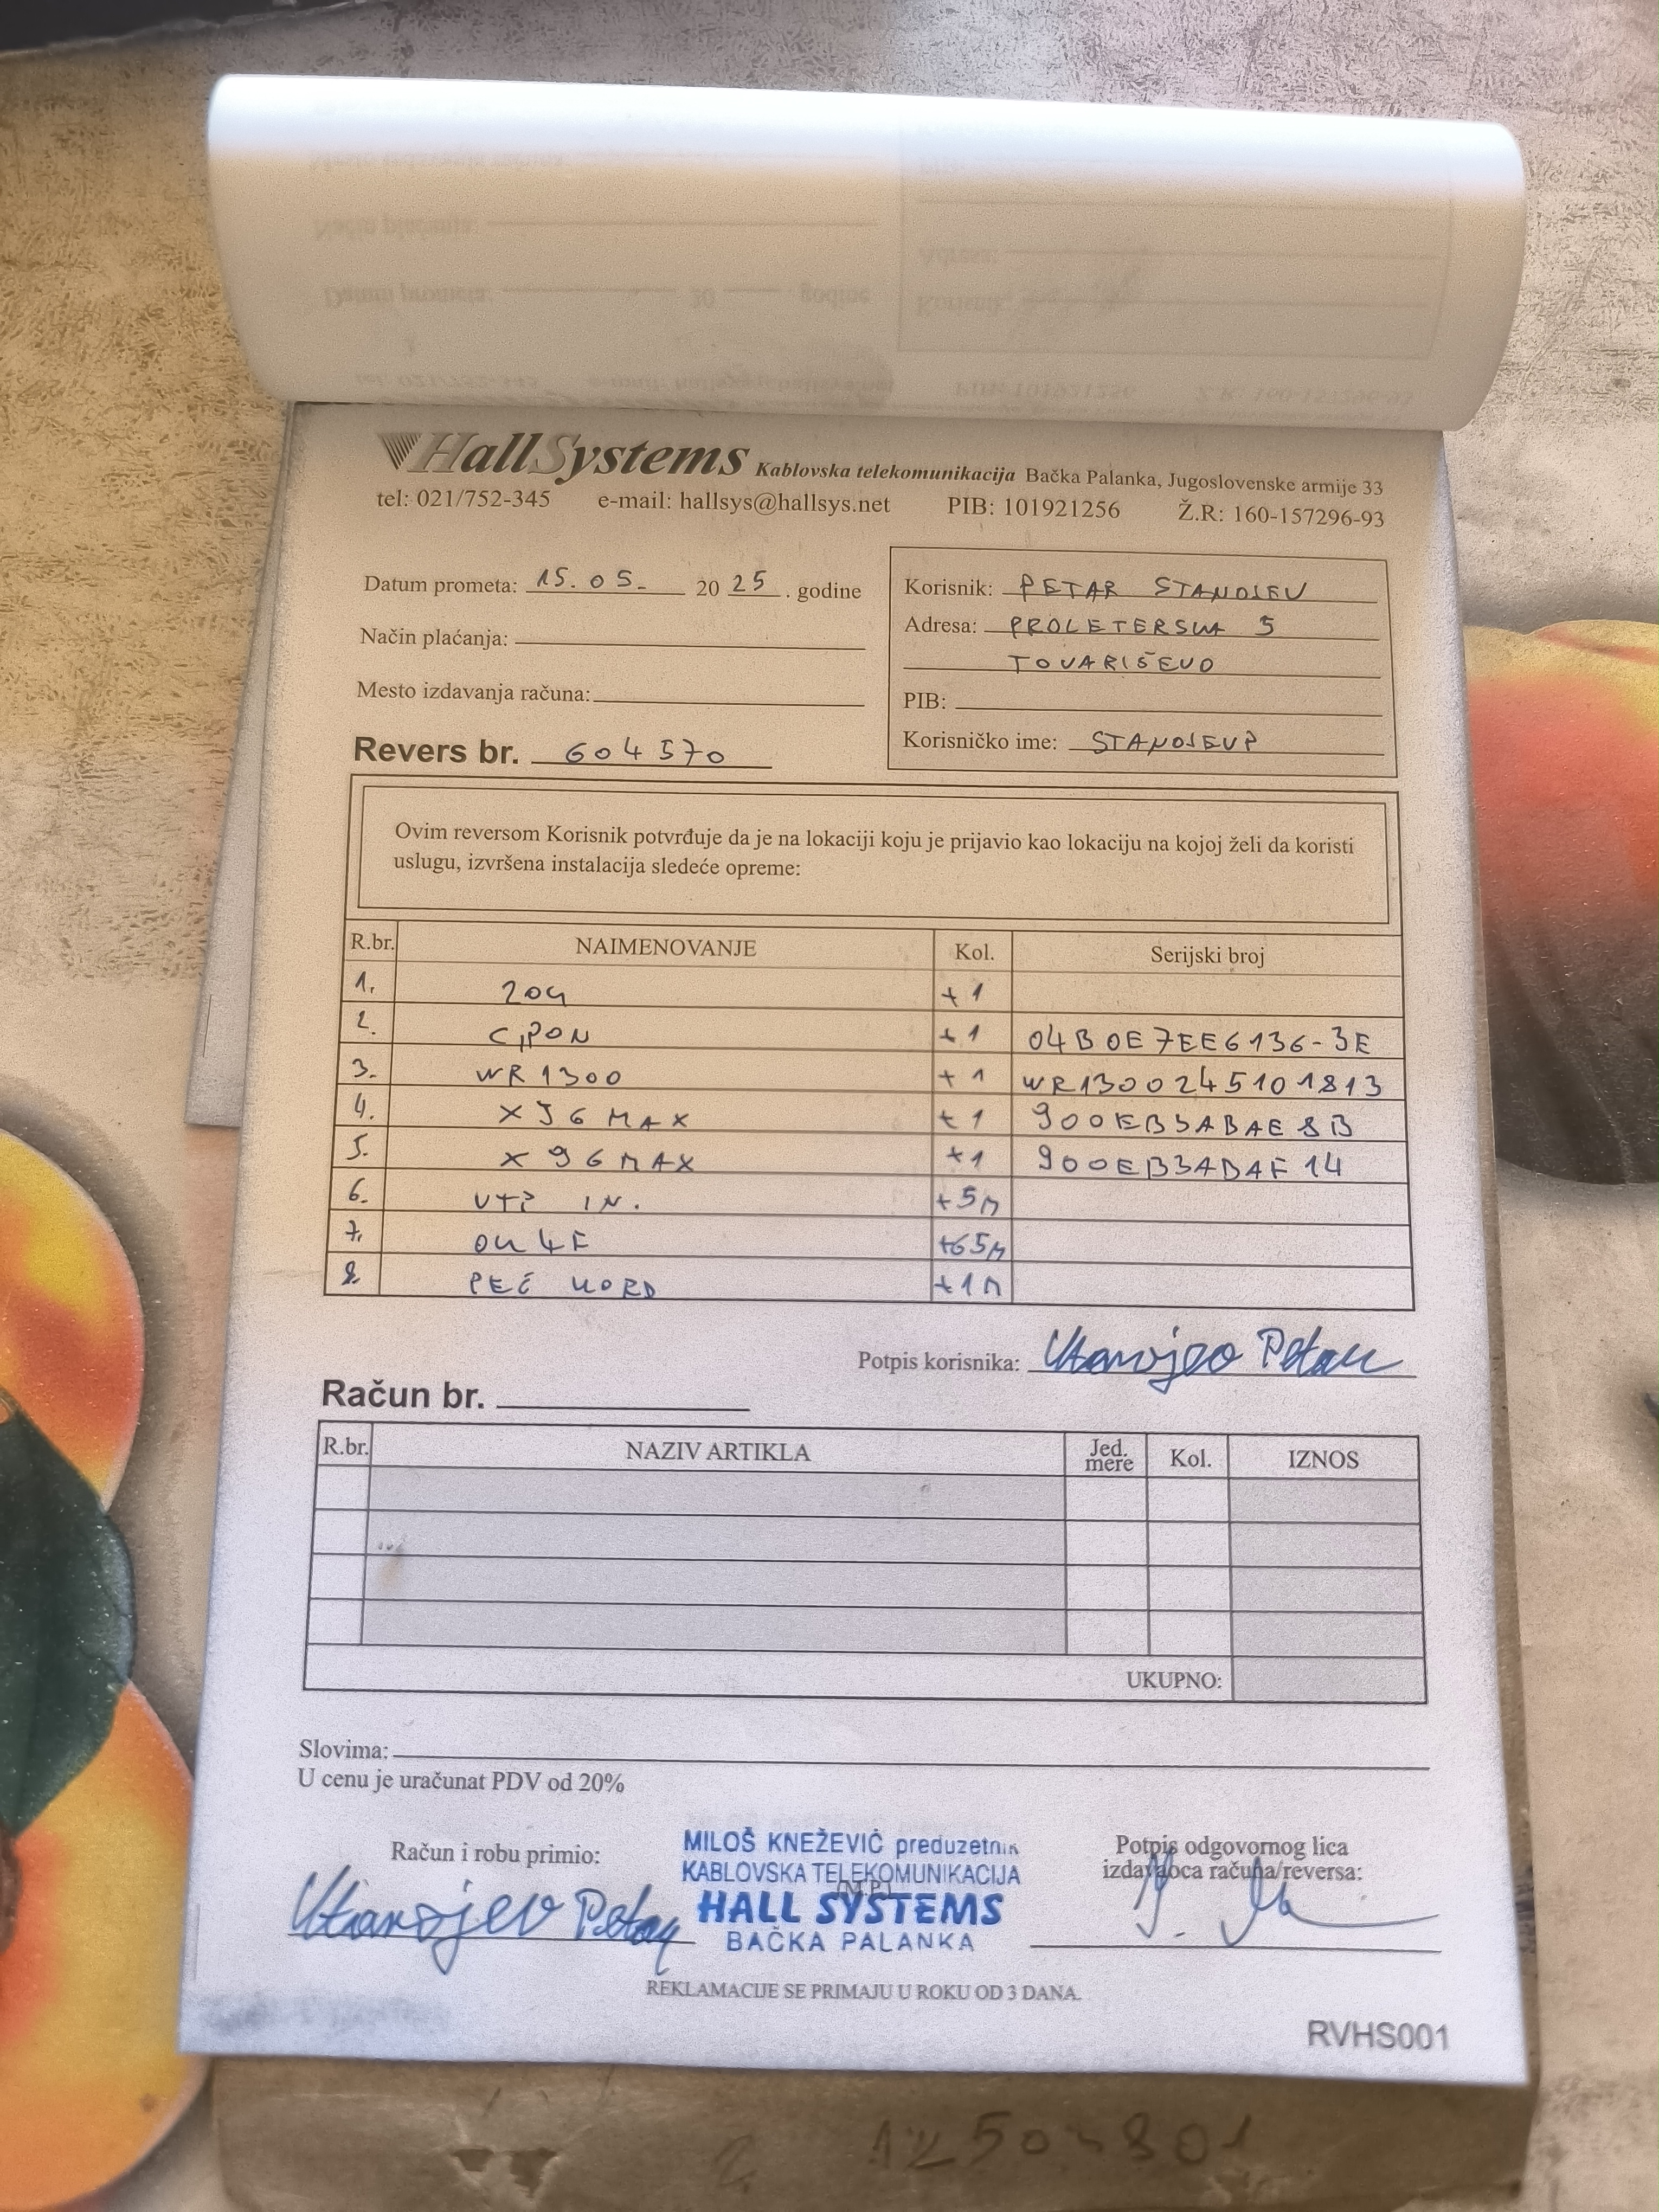 HallSystems Kablovska telekomunikacija Bačka Palanka, Jugoslovenske armije 33
tel: 021/752-345 e-mail: hallsys@hallsys.net PIB: 101921256 Ž.R: 160-157296-93
Datum prometa: 15.05. 2025. godine
Način plaćanja:
Mesto izdavanja računa:
Revers br. 604570
Korisnik: PETAR STANOJEV
Adresa: PROLETERSKA 5
TOVARIŠEVO
PIB:
Korisničko ime: STANOJEVP
Ovim reversom Korisnik potvrđuje da je na lokaciji koju je prijavio kao lokaciju na kojoj želi da koristi
uslugu, izvršena instalacija sledeće opreme:
R.br. NAIMENOVANJE Kol. Serijski broj
1. +1
2. +1 04B0E7EE6136-3E
3. WR1300 +1 WR1300245101813
4. X96 MAX +1 900EB3ABAE8B
5. X96MAX +1 900EB3ABAF14
6. UTP IN. +5M
7. OK 4F +65M
8. KORD +1M
Potpis korisnika: Stanojev Petar
Račun br.
R.br. NAZIV ARTIKLA Jed. mere Kol. IZNOS
UKUPNO:
Slovima:
U cenu je uračunat PDV od 20%
Račun i robu primio:
Stanojev Petar
MILOŠ KNEŽEVIĆ preduzetnik
KABLOVSKA TELEKOMUNIKACIJA
(M.P.)
HALL SYSTEMS
BAČKA PALANKA
Potpis odgovornog lica
izdavaoca računa/reversa:
REKLAMACIJE SE PRIMAJU U ROKU OD 3 DANA.
RVHS001